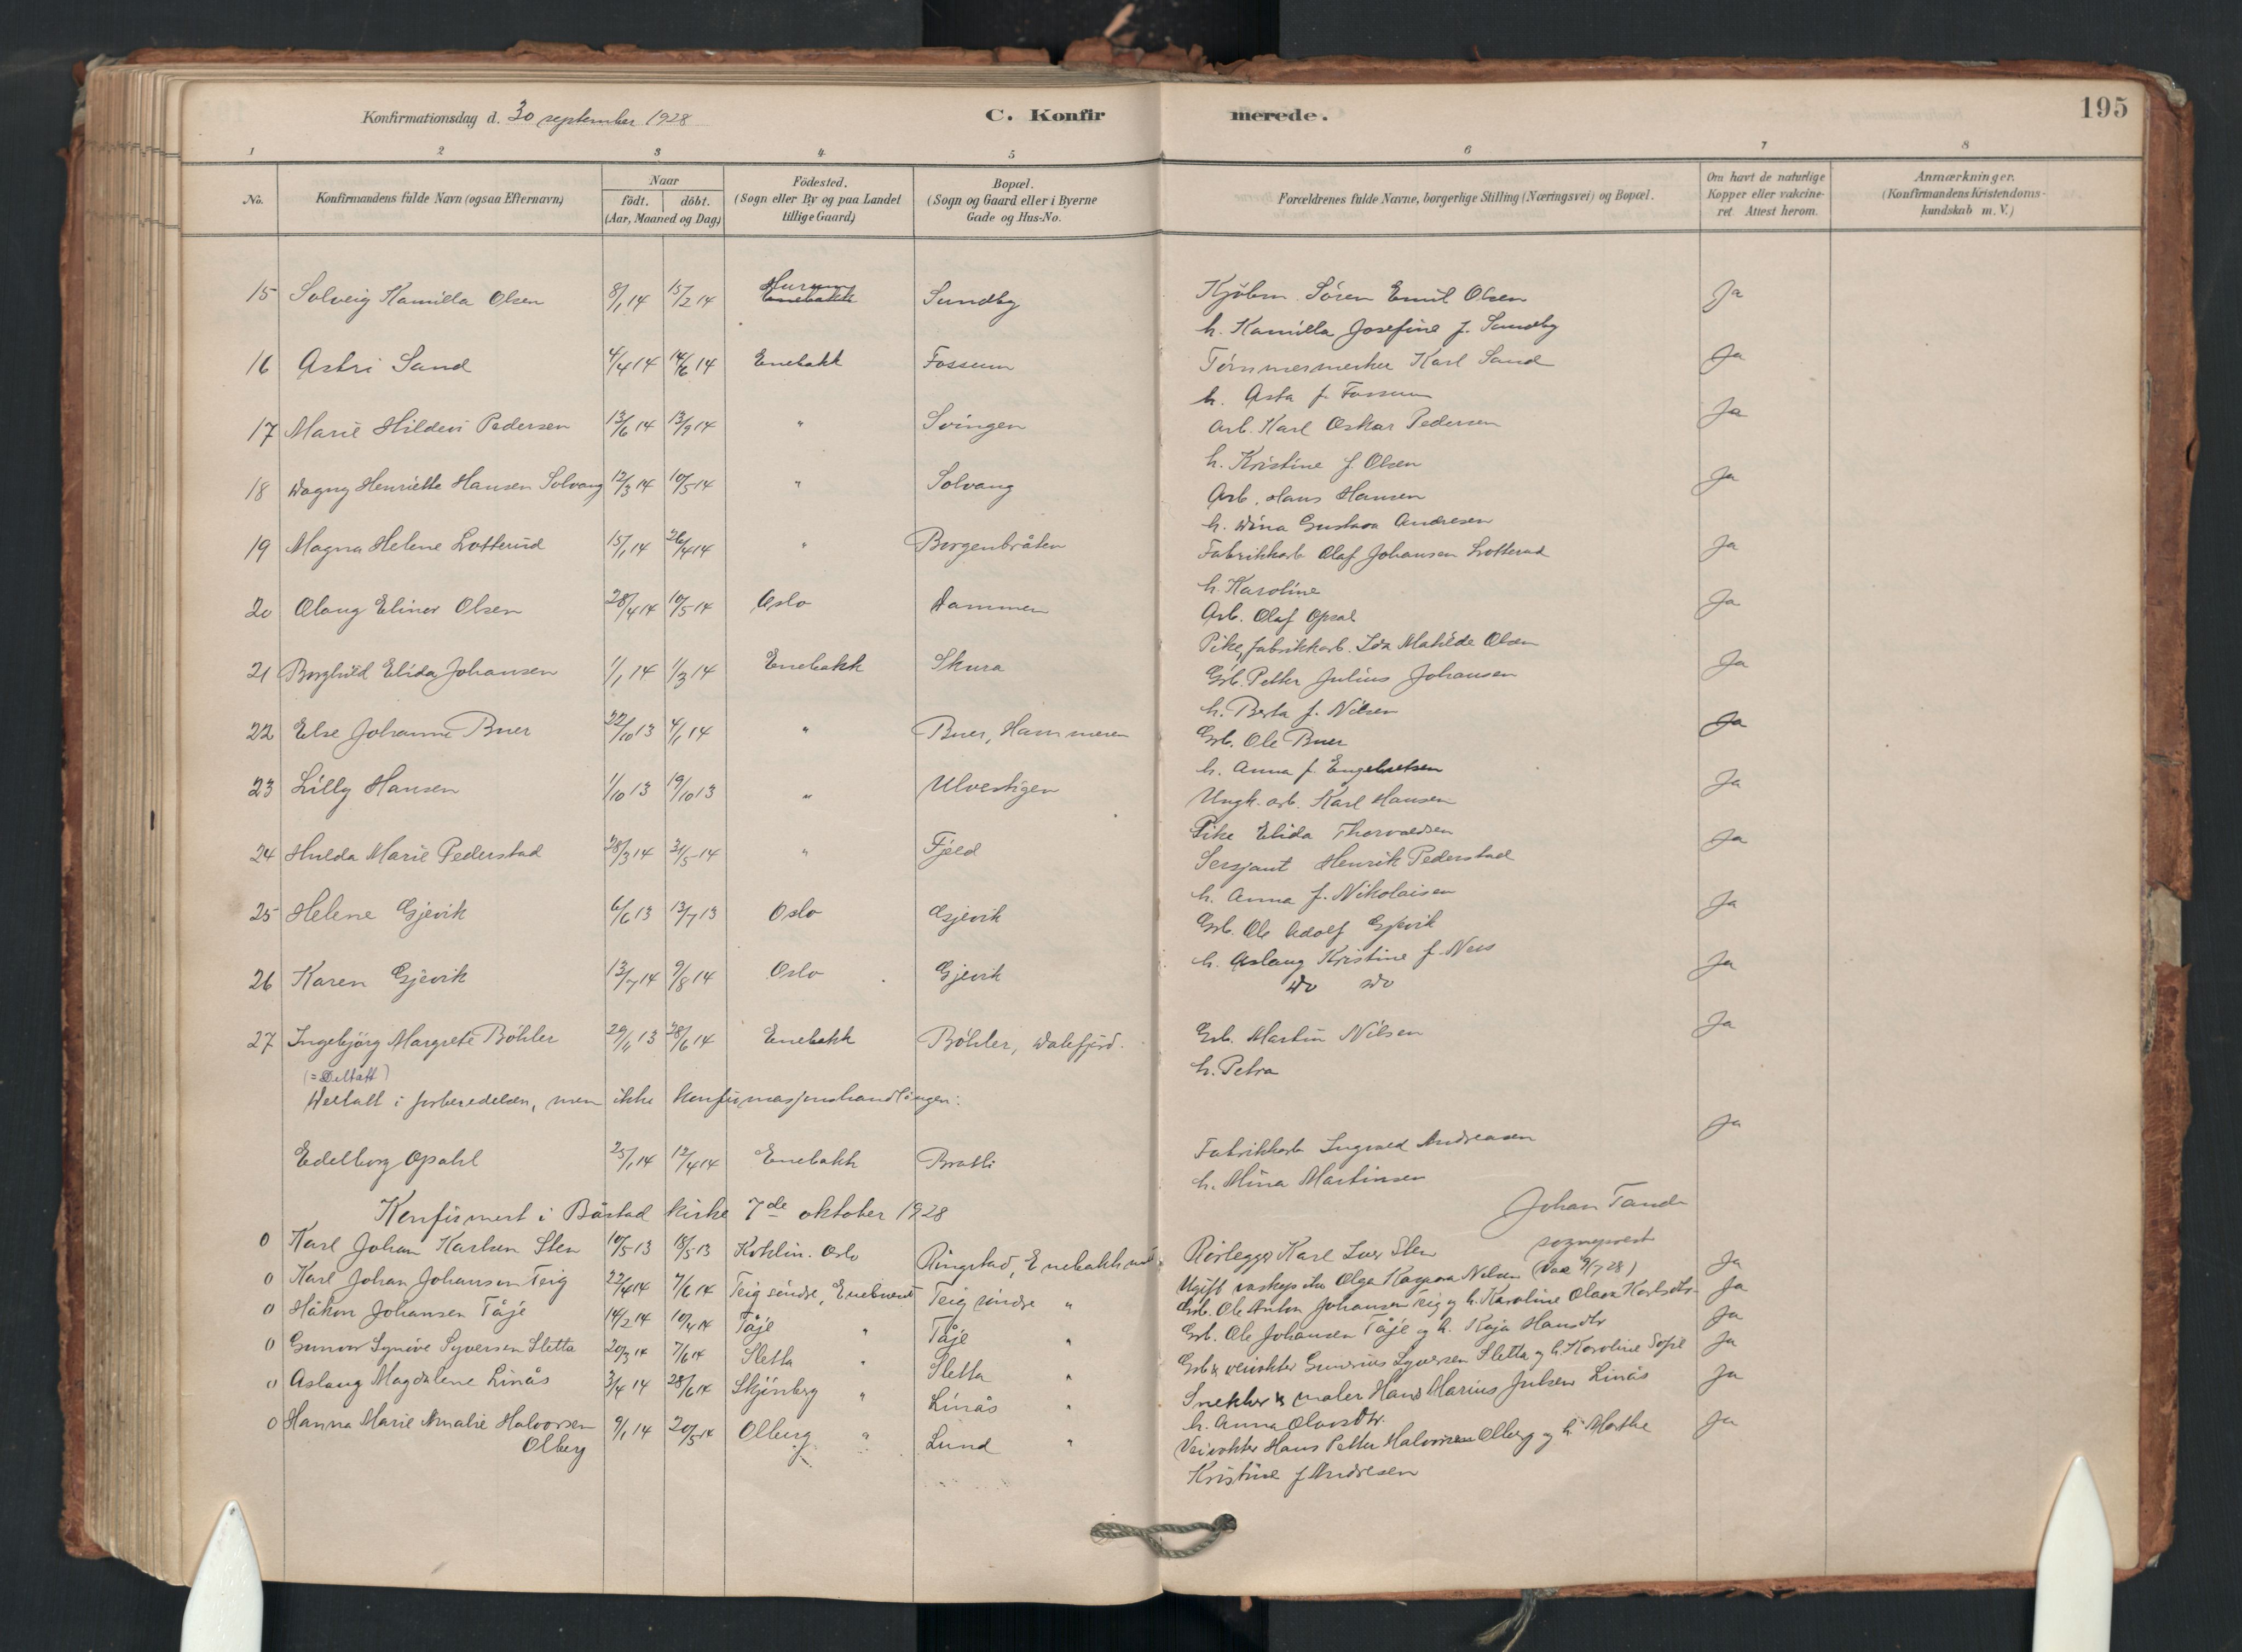 Konfirmationsdag d. 30 september 1928
C. Konfirmerede.
195
1 2 3 4 5 6 7 8
No.
Konfirmandens fulde Navn (ogsaa Efternavn)
Naar
födt. döbt.
(Aar, Maaned og Dag)
Födested.
(Sogn eller By og paa Landet
tillige Gaard)
Bopæl.
(Sogn og Gaard eller i Byerne
Gade og Hus-No.
Forældrenes fulde Navne, borgerlige Stilling (Næringsvei) og Bopæl.
Om havt de naturlige
Kopper eller vakcine-
ret. Attest herom.
Anmærkninger.
(Konfirmandens Kristendoms-
kundskab m. V.)
15 Solveig Kamilla Olsen 8/1 14 15/2 14 Hurum Enebakk Sundby Kjöbm. Sören Emil Olsen Ja
h. Kamilla Josefine f. Sundby
16 Astri Sand 4/4 14 14/6 14 Enebakk Fossum Tömmermerker Karl Sand Ja
h. Asta f. Fossum
17 Marie Hildevi Pedersen 13/6 14 13/9 14 " Svingen Arb. Karl Oskar Pedersen Ja
h. Kristine f. Olsen
18 Dagny Henriette Hansen Solvang 12/3 14 10/5 14 " Solvang Arb. Hans Hansen Ja
h. Dina Gustava Andresen
19 Magna Helene Lotterud 15/1 14 26/4 14 " Borgenbråten Fabrikkarb. Olaf Johansen Lotterud Ja
h. Karoline
20 Olaug Elinor Olsen 28/4 14 10/5 14 Oslo Dammen Arb. Olaf Opsal Ja
Pike, fabrikkarb. Ida Matilde Olsen
21 Borghild Elida Johansen 1/1 14 1/3 14 Enebakk Skura Grb. Petter Julius Johansen Ja
h. Berta f. Nilsen
22 Else Johanne Buer 22/10 13 4/1 14 " Buer, Hammeren Grb. Ole Buer Ja
h. Anna f. Engebretsen
23 Lilly Hansen 1/10 13 19/10 13 " Ulvestigen Ungk. arb. Karl Hansen Ja
Pike Elida Thorvaldsen
24 Hulda Marie Pederstad 28/3 14 31/5 14 " Fjeld Sersjant Henrik Pederstad Ja
h. Anna f. Nikolaisen
25 Helene Gjevik 6/6 13 13/7 13 Oslo Gjevik Grb. Ole Adolf Gjevik Ja
h. Aslaug Kristine f. Ness
26 Karen Gjevik 13/7 14 9/8 14 Oslo Gjevik do do Ja
27 Ingebjörg Margrete Böhler 29/11 13 28/6 14 Enebakk Böhler, Dalefjerd. Grb. Martin Nilsen Ja
h. Petra
(= Deltatt)
Deltatt i forberedelsen, men ikke konfirmasjonshandlingen:
Edelborg Opahl 25/1 14 12/4 14 Enebakk Bratli Fabrikkarb Ingvald Andreasen Ja
h. Mina Martinsen
Konfirmert i Båstad kirke 7de oktober 1928 Johan Tande
sogneprest
0 Karl Johan Karlsen Sten 10/5 13 18/5 13 Kvklin. Oslo Ringstad, Enebakk Rörlegger Karl Iver Sten Ja
Ugift vaskepike Olga Kaspara Nilsen
0 Karl Johan Johansen Teig 22/4 14 7/6 14 Teig söndre, Teig söndre " Grb. Ole Anton Johansen Teig og h. Karoline Olava Karlsdtr. Ja
0 Håkon Johansen Tåje 14/2 14 10/4 14 Tåje " Tåje " Grb. Ole Johansen Tåje og h. Kaja Hansdtr Ja
0 Gunvor Synöve Syversen Sletta 20/3 14 7/6 14 Sletta " Sletta " Grb & veivokter Gunerius Syversen Sletta og h. Karoline Sofie Ja
0 Aslaug Magdalene Linås 3/4 14 28/6 14 Skjönberg " Linås " Snekker & maler Hans Marius Julsen Linås Ja
h. Anna Olavsdtr.
0 Hanna Marie Amalie Halvorsen 9/1 14 20/5 14 Olberg " Lund " Veivokter Hans Petter Halvorsen Olberg og h. Marthe Ja
Olberg
Kristine f Andresen